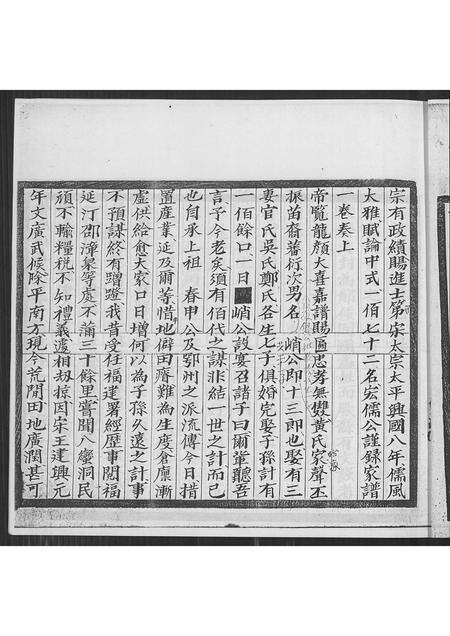 宗有政績賜進士第宋太宗太平興國八年儒風
大雅賦論中式一佰七十二名宏儒公謹録家譜
一卷奏上
帝覧龍顔大喜嘉譜賜匾忠孝無雙黄氏家聲丕
振苗裔蕃衍次男名峭公即十三郎也娶有三
妻官氏吳氏鄭氏各生七子俱婚完娶子孫計有
一佰餘口一日峭公設宴召諸子曰爾輩聽吾
言予今老矣須有佰代之謀非結一世之計而已
也自承上祖春申公及鄂州之派流傳今日措
置産業延及爾等惜地僻田瘠難為生度倉廪漸
虚供給愈大家口日增何以為子孫久遠之計事
不預謀終有蹭蹬我昔受任福建署經歷事閱福
延汀邵漳泉等處不滿三十餘里嘗聞八蠻洞民
頑不輸糧税不知禮義遞相刼掠因宋王建興元
年文廣武候除平南方現今荒閒田地廣濶甚可